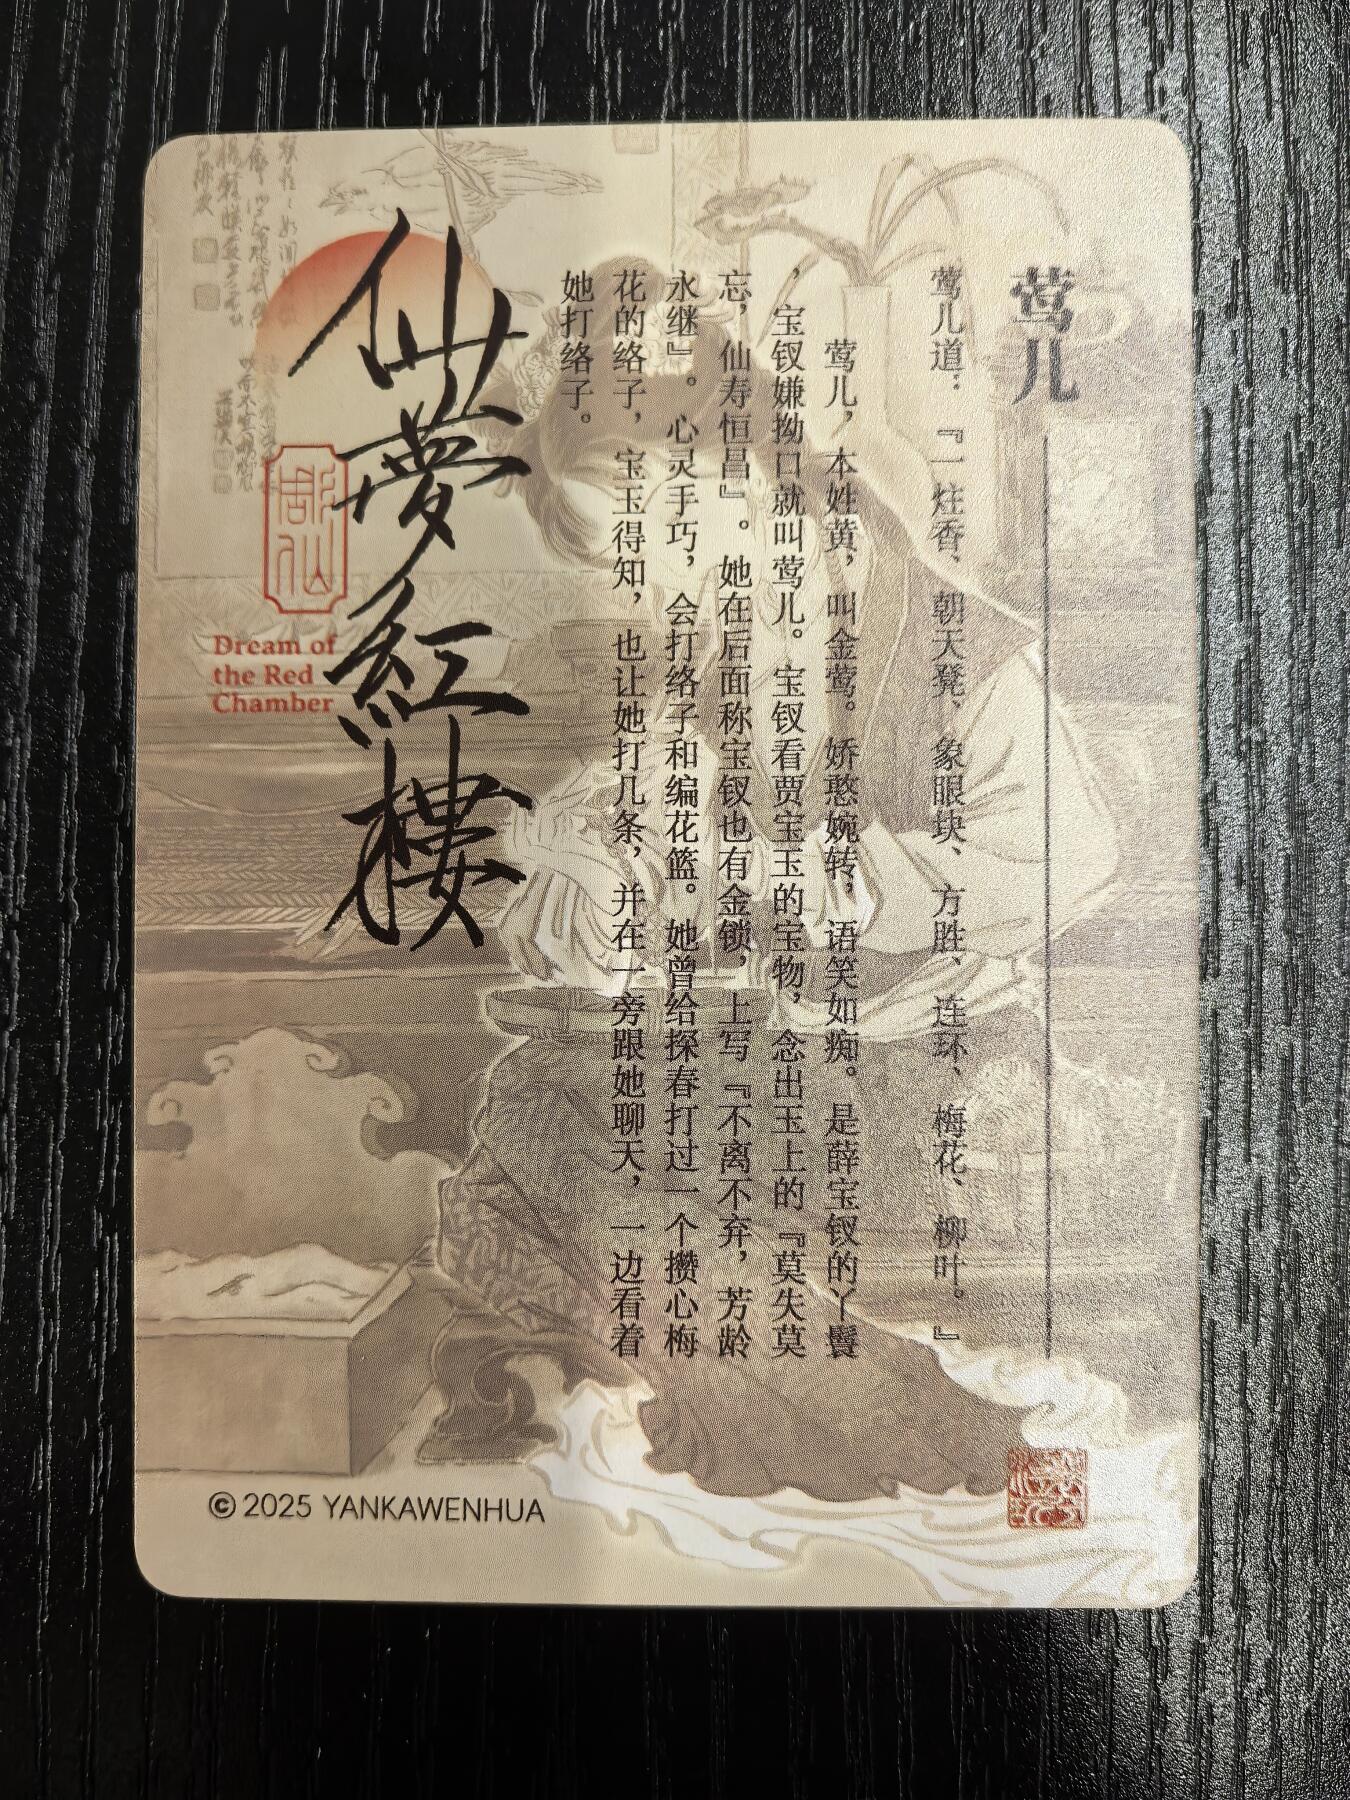 莺儿
莺儿道：『一炷香、朝天凳、象眼块、方胜、连环、梅花、柳叶。』
莺儿，本姓黄，叫金莺。娇憨婉转，语笑如痴。是薛宝钗的丫鬟
，宝钗嫌拗口就叫莺儿。宝钗看贾宝玉的宝物，念出玉上的『莫失莫
忘，仙寿恒昌』。她在后面称宝钗也有金锁，上写『不离不弃，芳龄
永继』。心灵手巧，会打络子和编花篮。她曾给探春打过一个攒心梅
花的络子，宝玉得知，也让她打几条，并在一旁跟她聊天，一边看着
她打络子。
仙夢紅樓
Dream of
the Red
Chamber
© 2025 YANKAWENHUA